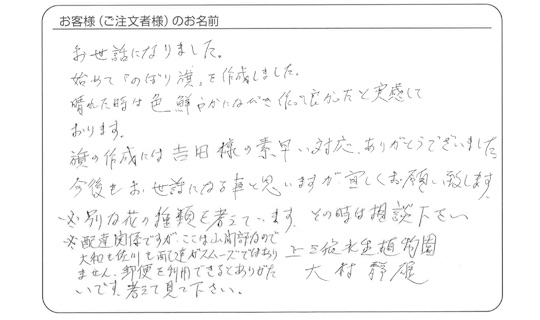 お客様（ご注文者様）のお名前
お世話になりました。
始めて「のぼり旗」を作成しました。
晴れた時は色鮮やかになびき作って良かったと実感して
おります。
旗の作成には吉田様の素早い対応、ありがとうございました
今後もお世話になる事と思いますが宜しくお願い致します
※別な花の種類を考えています。その時は相談下さい
※配達関係ですが、ここは山間部なので
大和も佐川も両し達がスムーズではあり
ません。郵便を利用できるとありがた
いです。考えて見て下さい。
上三宮水生植物園
大村静雄